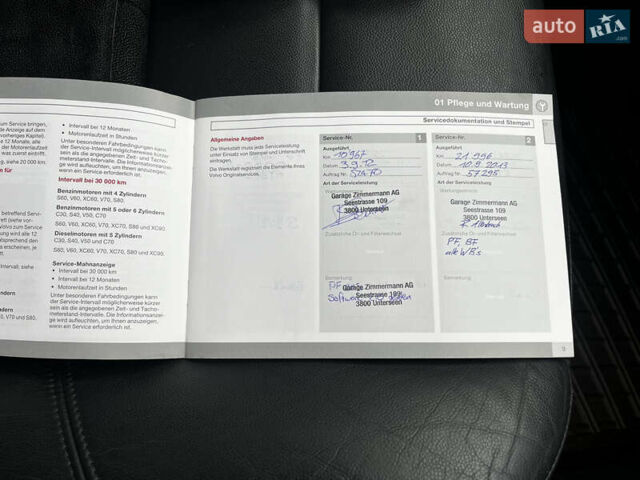 auto RIA.com
01 Pflege und Wartung
Servicedokumentation und Stempel
um Service bringen,
de Anzeige auf dem
vorheriges Kapitel).
12 Monate, alle
der Motorenlaufzeit
was zuerst eintrifft.
g, siehe 20 000 km.
m für
betreffend Servi-
(siehe vor-
Volvo zum Service
wird alle 12
sprechend den
es erscheinen, je
Intervall, siehe
V70 und S80,
• Intervall bei 12 Monaten
• Motorenlaufzeit in Stunden
Unter besonderen Fahrbedingungen kann
der Service-Intervall möglicherweise kürzer
sein als die angegebenen Zeit- und Tacho-
meterstand-Intervalle. Die Informationsanzei-
ge wird aufleuchten, um Ihnen anzuzeigen,
wenn ein Service erforderlich ist.
Intervall bei 30 000 km
Benzinmotoren mit 4 Zylindern
S60, V60, XC60, V70, S80.
Benzinmotoren mit 5 oder 6 Zylindern
C30, S40, V50, C70
S60, V60, XC60, V70, XC70, S80 und XC90.
Dieselmotoren mit 5 Zylindern
C30, S40, V50 und C70
S60, V60, XC60, V70, XC70, S80 und XC90.
Service-Mahnanzeige
• Intervall bei 30 000 km
• Intervall bei 12 Monaten
• Motorenlaufzeit in Stunden
Unter besonderen Fahrbedingungen kann
der Service-Intervall möglicherweise kürzer
sein als die angegebenen Zeit- und Tacho-
meterstand-Intervalle. Die Informationsanzei-
ge wird aufleuchten, um Ihnen anzuzeigen,
wenn ein Service erforderlich ist.
Allgemeine Angaben
Die Werkstatt muss jede Serviceleistung
unter Einsatz von Stempel und Unterschrift
eintragen.
Die Werkstatt registriert die Elemente Ihres
Volvo Originalservices.
Service-Nr. 1
Ausgeführt
Km 10967
Datum 3.9.12
Auftrag Nr. 52470
Art der Serviceleistung
Garage Zimmermann AG
Seestrasse 109
3800 Unterseen
Zusätzliche Öl- und Filterwechsel
Bemerkung
PF
Garage Zimmermann AG
Seestrasse 109
3800 Unterseen
Software
Service-Nr. 2
Ausgeführt
Km 21 996
Datum 10.9.2013
Auftrag Nr. 57295
Art der Serviceleistung
Wartungsservice
Garage Zimmermann AG
Seestrasse 109
3800 Unterseen
Zusätzliche Öl- und Filterwechsel
PF, BF
Bemerkung
9